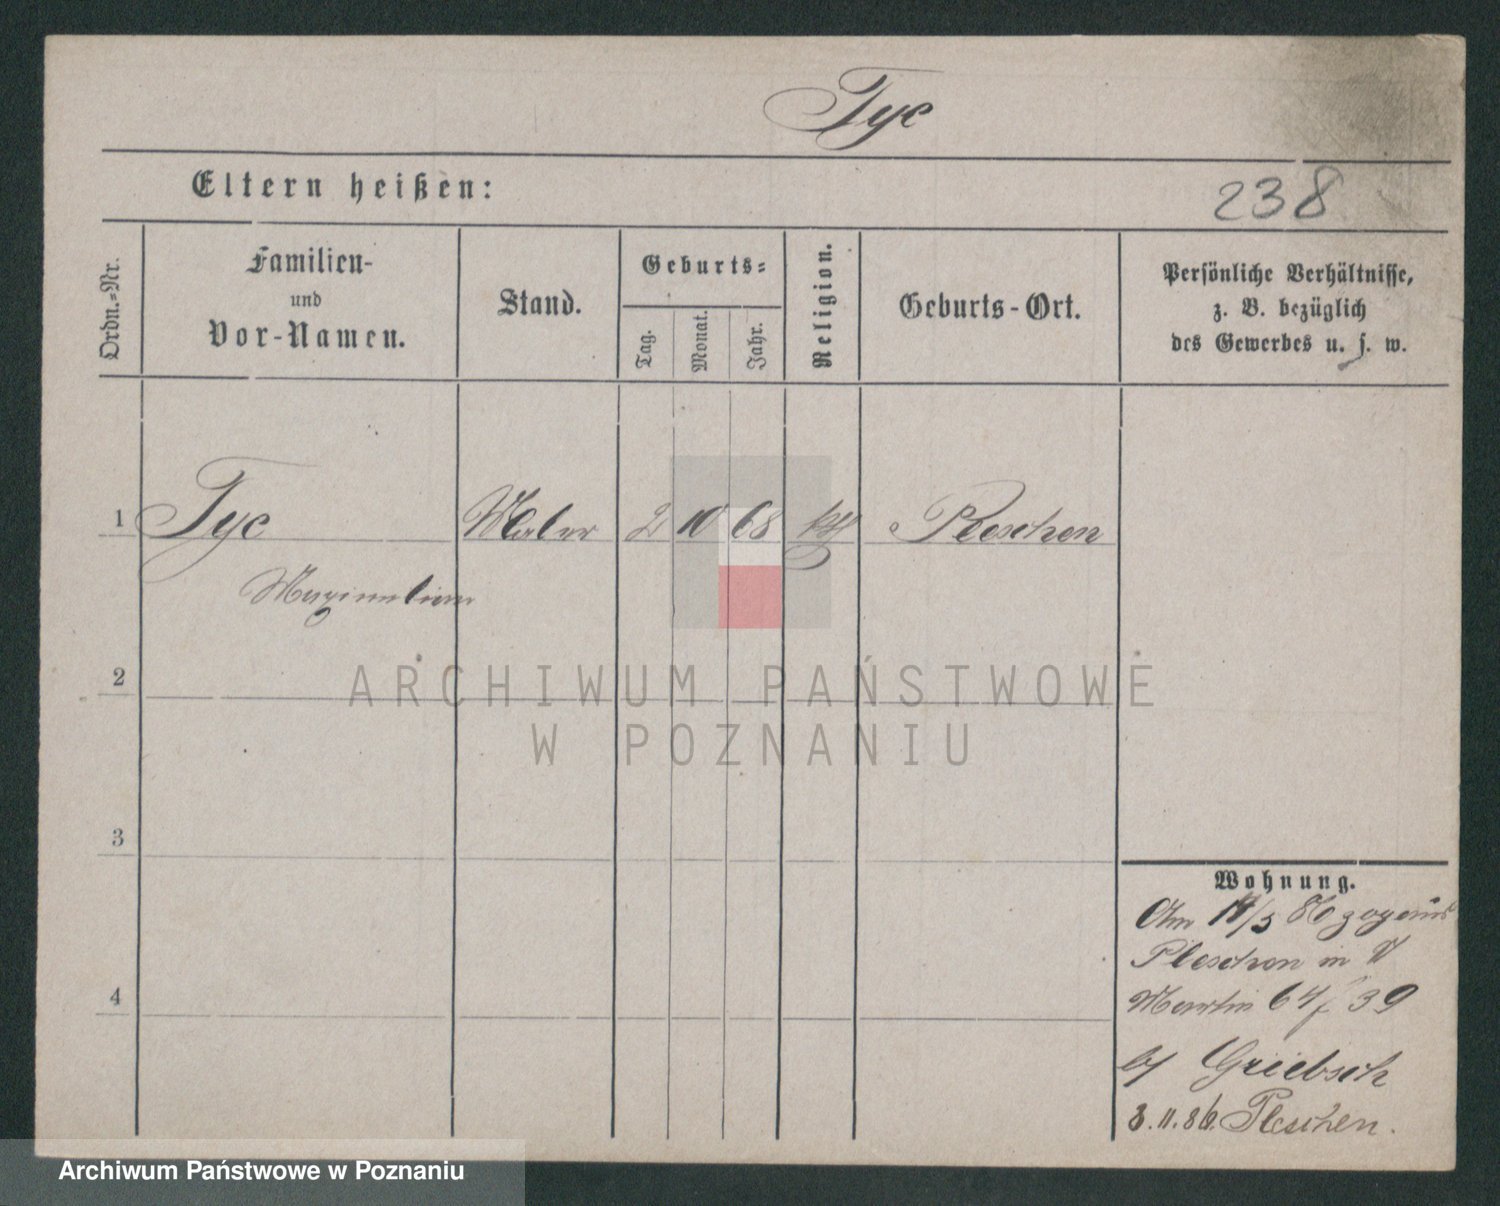 Tyc
Eltern heißen:
238
Ordn.=Nr.
Familien-
und
Vor-Namen.
Stand.
Geburts=
Tag.
Monat.
Jahr.
Religion.
Geburts-Ort.
Persönliche Verhältnisse,
z. B. bezüglich
des Gewerbes u. s. w.
1 Tyc Maler 2 10 68 kth Pleschen
Maximilian
2
3
4
ARCHIWUM PAŃSTWOWE
W POZNANIU
Wohnung.
Am 14/5 86 zog aus
Pleschen in
Martin 64 39
b/ Griebsch
3.11.86. Pleschen.
Archiwum Państwowe w Poznaniu